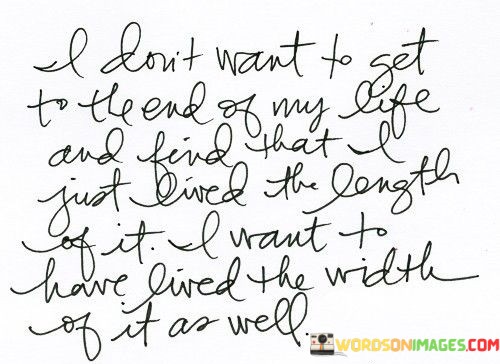 I don't want to get
to the end of my life
and find that I
just lived the length
of it. I want to
have lived the width
of it as well.
WORDSONIMAGES.COM